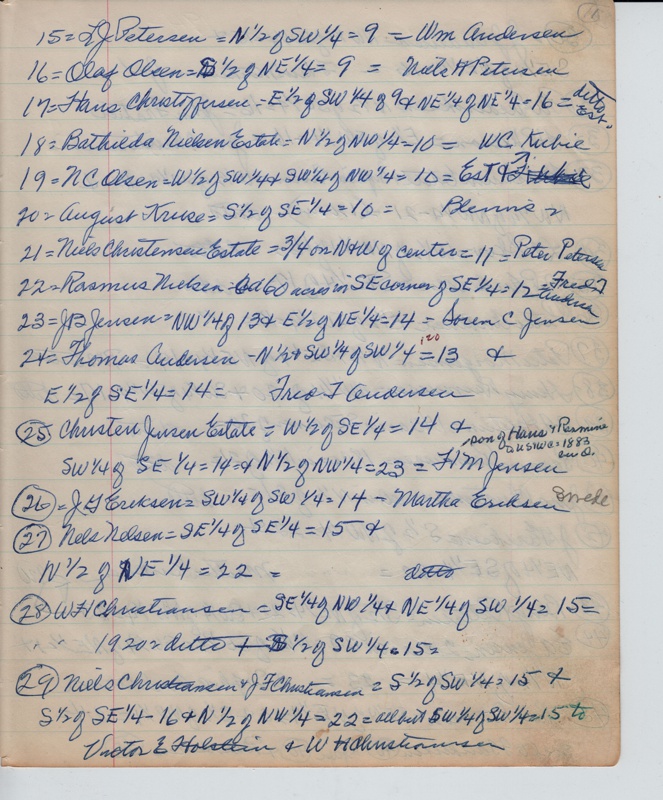 16
15 = L J Petersen = N 1/2 of SW 1/4 = 9 = Wm Andersen
16 = Olaf Olsen = S 1/2 of NE 1/4 = 9 = Niels H Petersen
17 = Hans Christoffersen = E 1/2 of SW 1/4 of 9 & NE 1/4 of NE 1/4 = 16 = ditto Est.
18 = Bathilda Nielsen Estate = N 1/2 of NW 1/4 = 10 = WC Kubie
19 = N C Olsen = W 1/2 of SW 1/4 & SW 1/4 of NW 1/4 = 10 = Est
20 = August Kruse = S 1/2 of SE 1/4 = 10 =
21 = Niels Christensen Estate = 3/4 on N & W of center = 11 = Peter Petersen
22 = Rasmus Nielsen = Od 60 acres in SE corner of SE 1/4 = 12 = Fred T
23 = J B Jensen = NW 1/4 of 13 & E 1/2 of NE 1/4 = 14 = Soren C Jensen
24 = Thomas Andersen - N 1/2 & SW 1/4 of SW 1/4 = 13 &
120
E 1/2 of SE 1/4 = 14 = Fred T Andersen
25 Christen Jensen Estate = W 1/2 of SE 1/4 = 14 &
son of Hans & Rasmine
D. K S W C = 1883
in O.
SW 1/4 of SE 1/4 = 14 = & N 1/2 of NW 1/4 = 23 = H M Jensen
26 = J G Eriksen = SW 1/4 of SW 1/4 = 14 - Martha Eriksen Swede
27 Nels Nelsen = SE 1/4 of SE 1/4 = 15 &
N 1/2 of NE 1/4 = 22 = ditto
28 W H Christiansen = SE 1/4 of NW 1/4 & NE 1/4 of SW 1/4 = 15 =
" " 1920 = ditto + S 1/2 of SW 1/4 = 15 =
29 Niels Christiansen & J F Christiansen = S 1/2 of SW 1/4 = 15 &
S 1/2 of SE 1/4 - 16 & N 1/2 of NW 1/4 = 22 = all but SW 1/4 of SW 1/4 = 15 to
Victor E Holstein & W H Christiansen